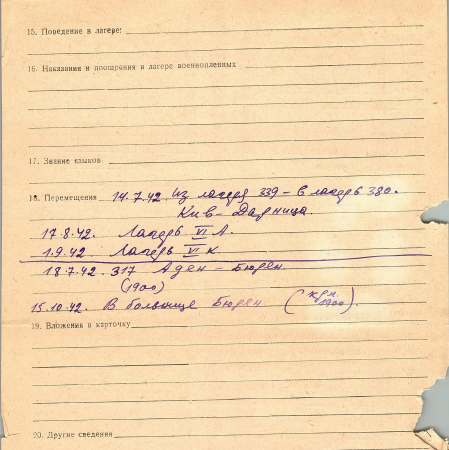 15. Поведение в лагере:
16. Наказания и поощрения в лагере военнопленных
17. Знание языков
18. Перемещения 14.7.42 Из лагеря 339 – в лагерь 380.
Киев-Дарница.
17.8.42. Лагерь VI А.
1.9.42 Лагерь VI К
18.7.42. 317 Аден – Бюрен.
(1900)
15.10.42. В больнице Бюрен (1900).
19. Вложения в карточку
20. Другие сведения